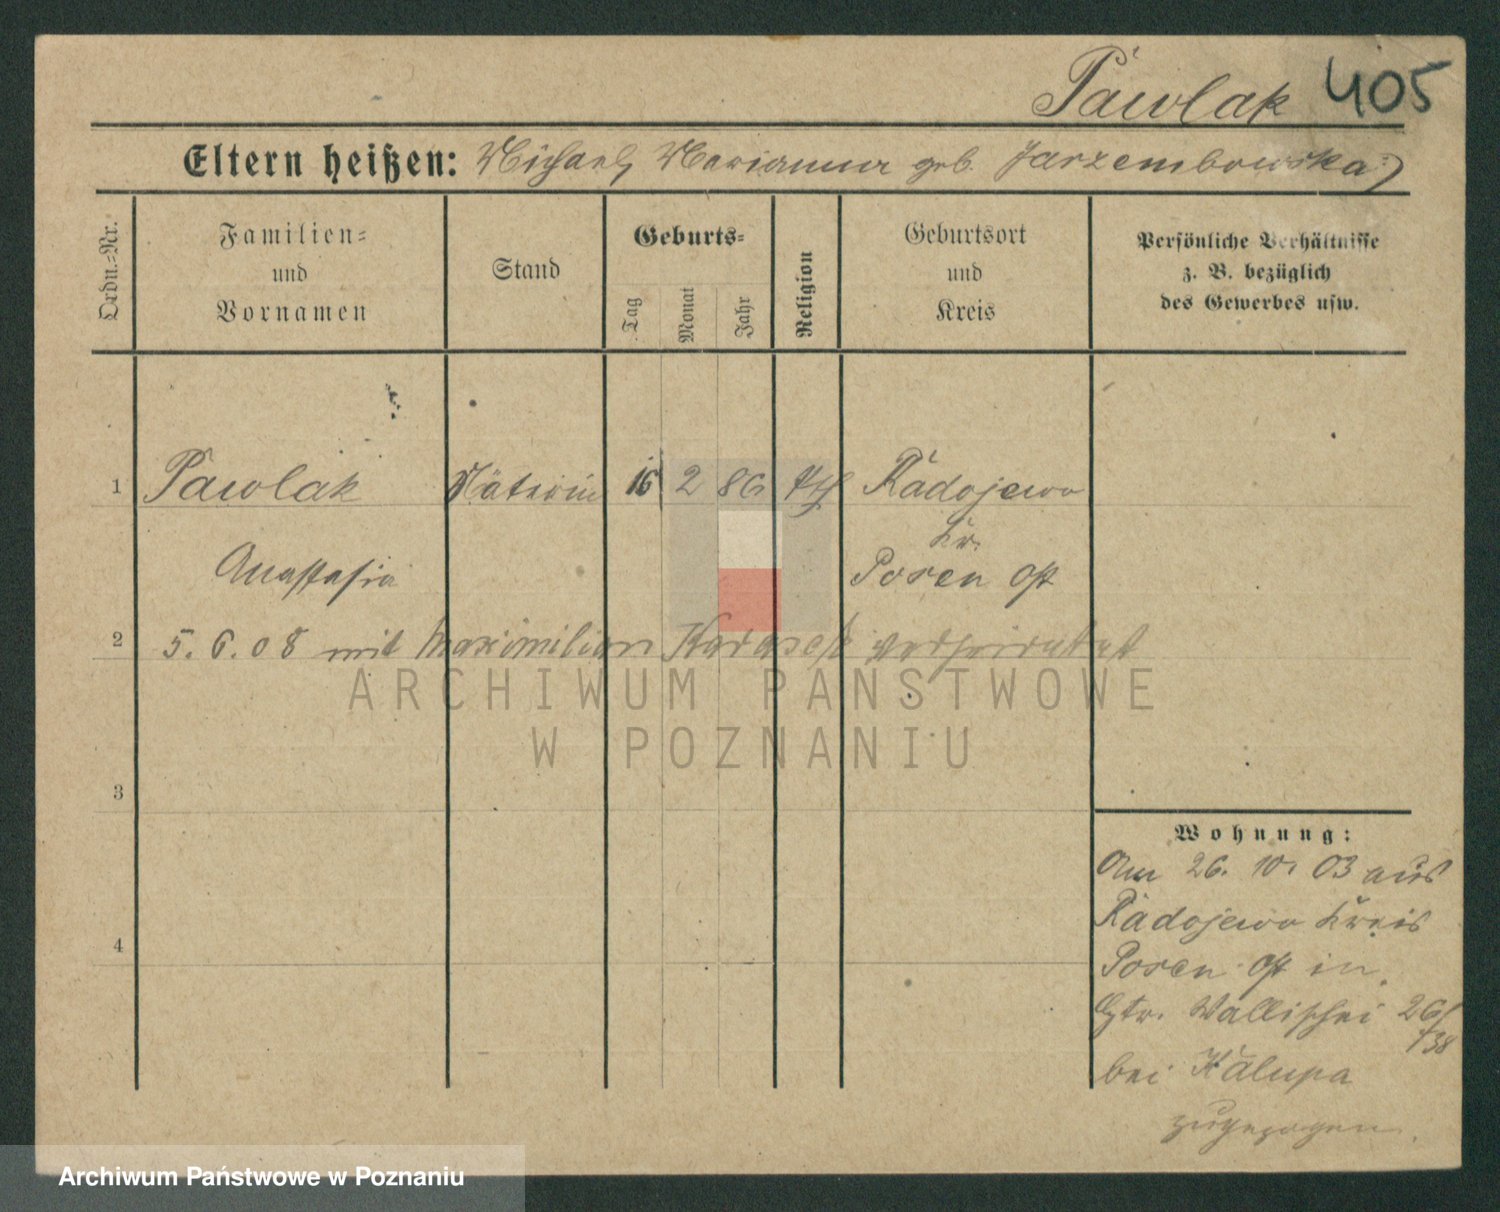 Pawlak 405
Eltern heißen: Michael, Marianna geb. Jarzembowska
Ordn.-Nr.
Familien-
und
Vornamen
Stand
Geburts-
Tag
Monat
Jahr
Religion
Geburtsort
und
Kreis
Persönliche Verhältnisse
z. B. bezüglich
des Gewerbes usw.
1 Pawlak 16 2 86 Radojewo
Kr.
Anastasia Posen Ost
2 5. 6. 08 mit Maximilian verheiratet
ARCHIWUM PAŃSTWOWE
W POZNANIU
3
Wohnung:
Am 26. 10. 03 aus
Radojewo Kreis
4
Posen Ost in
Wallischei 26/
38
bei Kalupa
zugezogen.
Archiwum Państwowe w Poznaniu